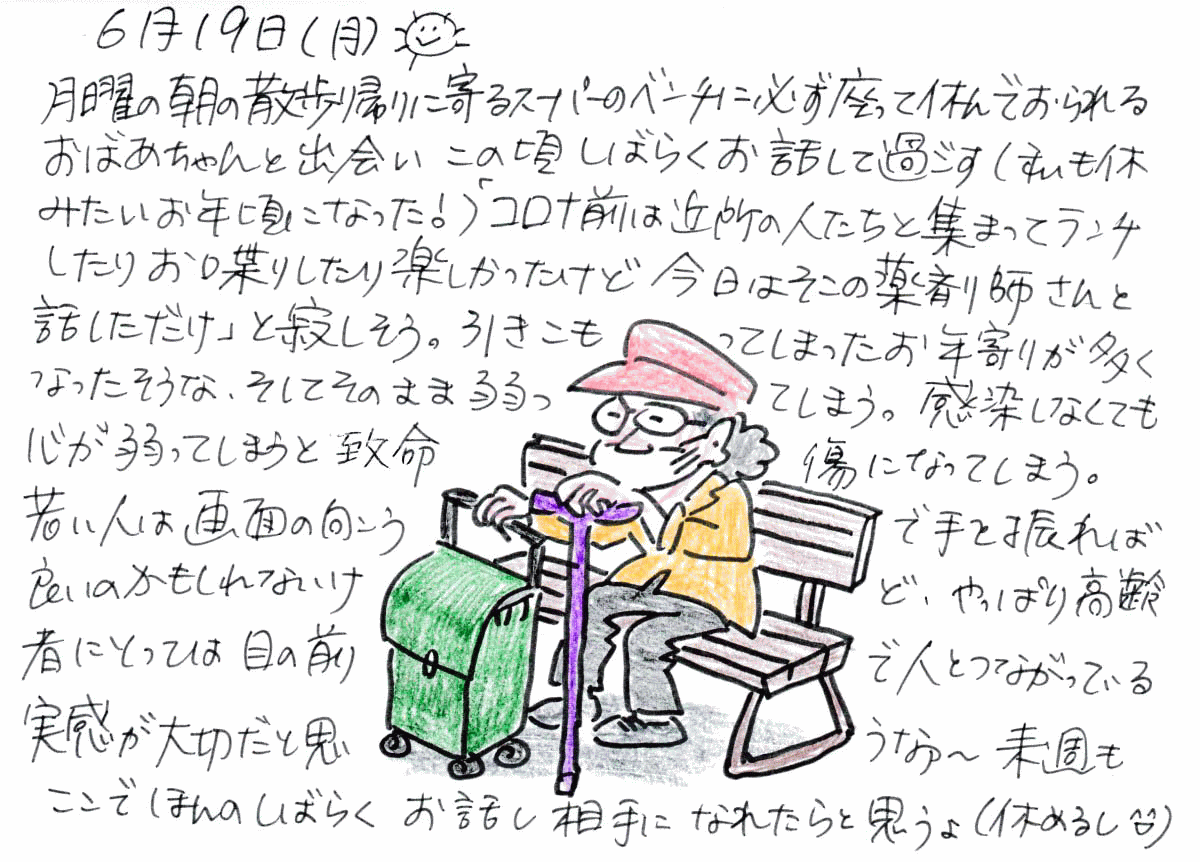 6月19日(月)
月曜の朝の散歩帰りに寄るスーパーのベンチに必ず座って休んでおられる
おばあちゃんと出会い この頃しばらくお話して過ごす(すいも休
みたいお年頃になった!)「コロナ前は近所の人たちと集まってランチ
したりお喋りしたり楽しかったけど 今日はそこの薬剤師さんと
話しただけ」と寂しそう。引きこも ってしまったお年寄りが多く
なったそうな、そしてそのまま弱っ てしまう。感染しなくても
心が弱ってしまうと致命 傷になってしまう。
若い人は画面の向こう で手を振れば
良いのかもしれないけ ど、やっぱり高齢
者にとっては目の前 で人とつながっている
実感が大切だと思 うなぁ〜 来週も
ここでほんのしばらく お話し相手に なれたらと思うよ(休めるし)